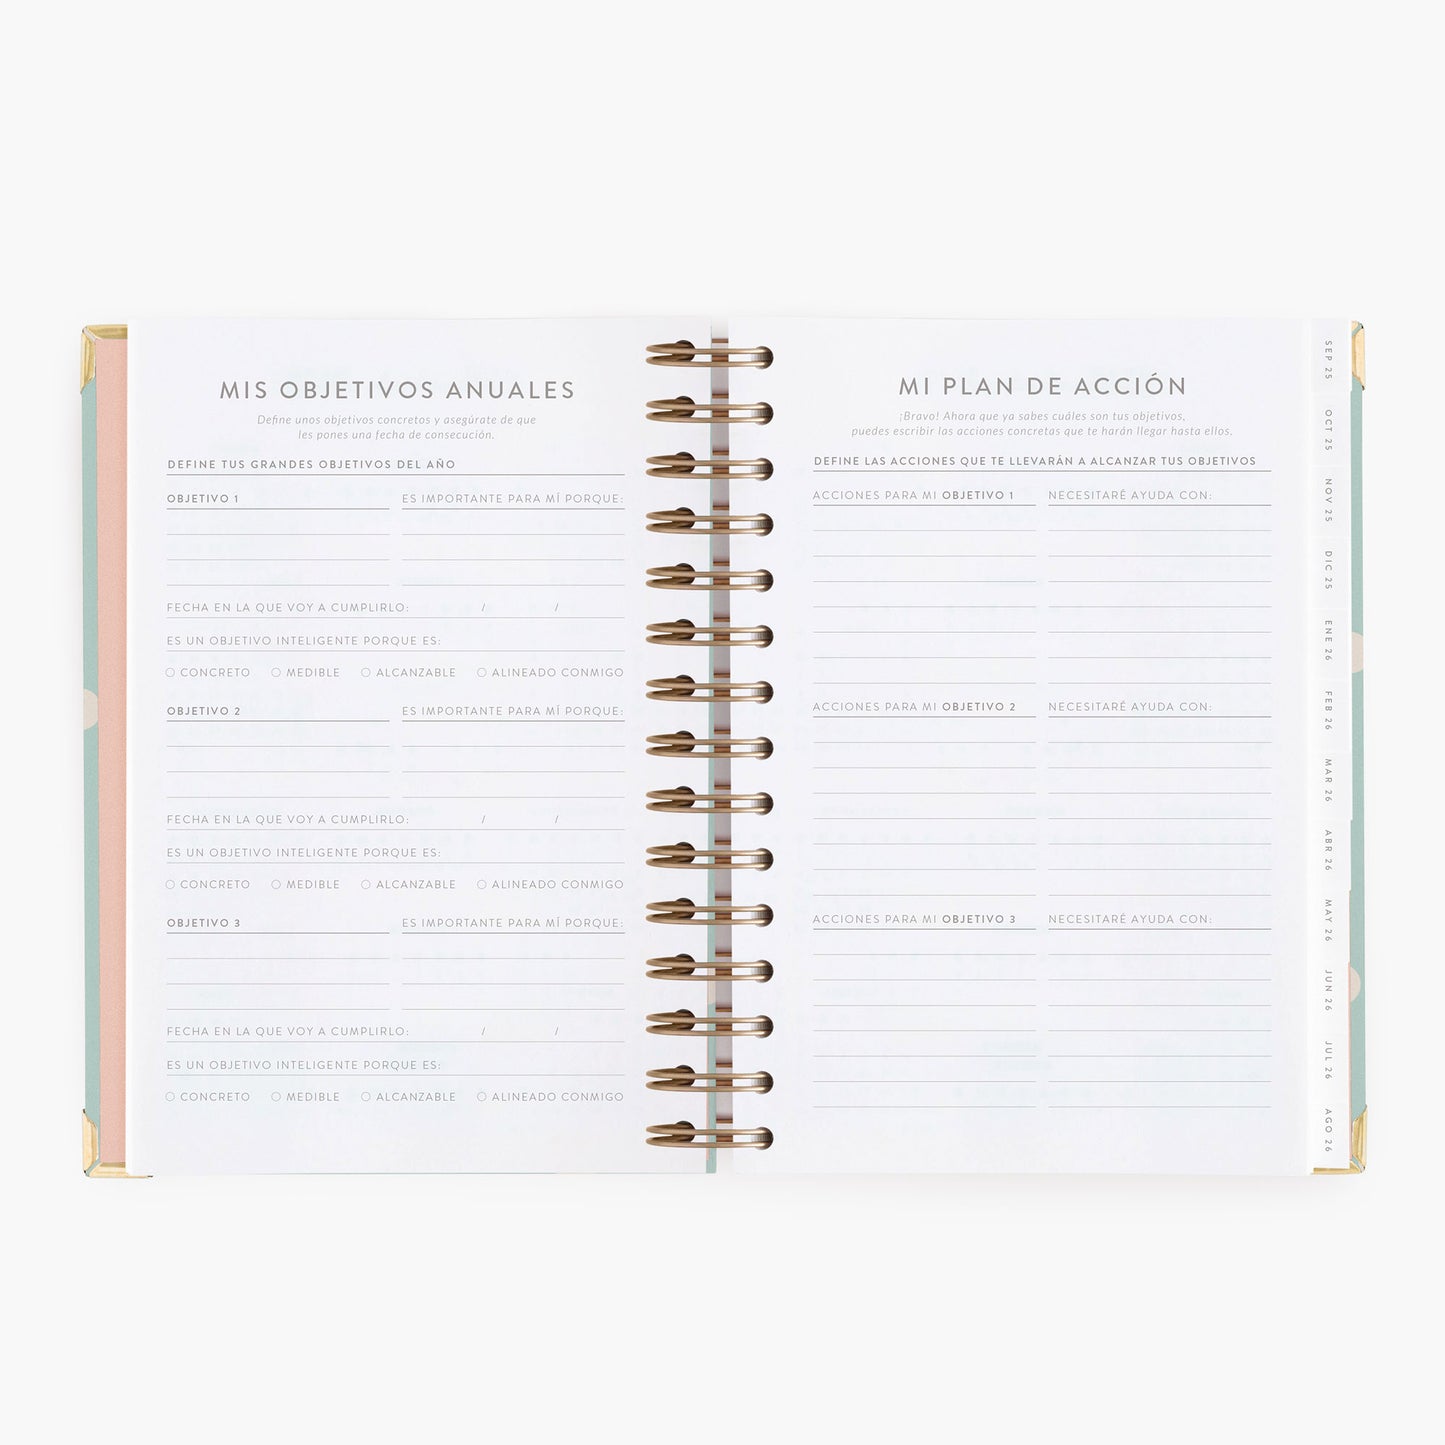 MIS OBJETIVOS ANUALES
Define unos objetivos concretos y asegúrate de que
les pones una fecha de consecución.
DEFINE TUS GRANDES OBJETIVOS DEL AÑO
OBJETIVO 1 ES IMPORTANTE PARA MÍ PORQUE:
FECHA EN LA QUE VOY A CUMPLIRLO: / /
ES UN OBJETIVO INTELIGENTE PORQUE ES:
CONCRETO MEDIBLE ALCANZABLE ALINEADO CONMIGO
OBJETIVO 2 ES IMPORTANTE PARA MÍ PORQUE:
FECHA EN LA QUE VOY A CUMPLIRLO: / /
ES UN OBJETIVO INTELIGENTE PORQUE ES:
CONCRETO MEDIBLE ALCANZABLE ALINEADO CONMIGO
OBJETIVO 3 ES IMPORTANTE PARA MÍ PORQUE:
FECHA EN LA QUE VOY A CUMPLIRLO: / /
ES UN OBJETIVO INTELIGENTE PORQUE ES:
CONCRETO MEDIBLE ALCANZABLE ALINEADO CONMIGO
MI PLAN DE ACCIÓN
¡Bravo! Ahora que ya sabes cuáles son tus objetivos,
puedes escribir las acciones concretas que te harán llegar hasta ellos.
DEFINE LAS ACCIONES QUE TE LLEVARÁN A ALCANZAR TUS OBJETIVOS
ACCIONES PARA MI OBJETIVO 1 NECESITARÉ AYUDA CON:
ACCIONES PARA MI OBJETIVO 2 NECESITARÉ AYUDA CON:
ACCIONES PARA MI OBJETIVO 3 NECESITARÉ AYUDA CON:
SEP 25
OCT 25
NOV 25
DIC 25
ENE 26
FEB 26
MAR 26
ABR 26
MAY 26
JUN 26
JUL 26
AGO 26